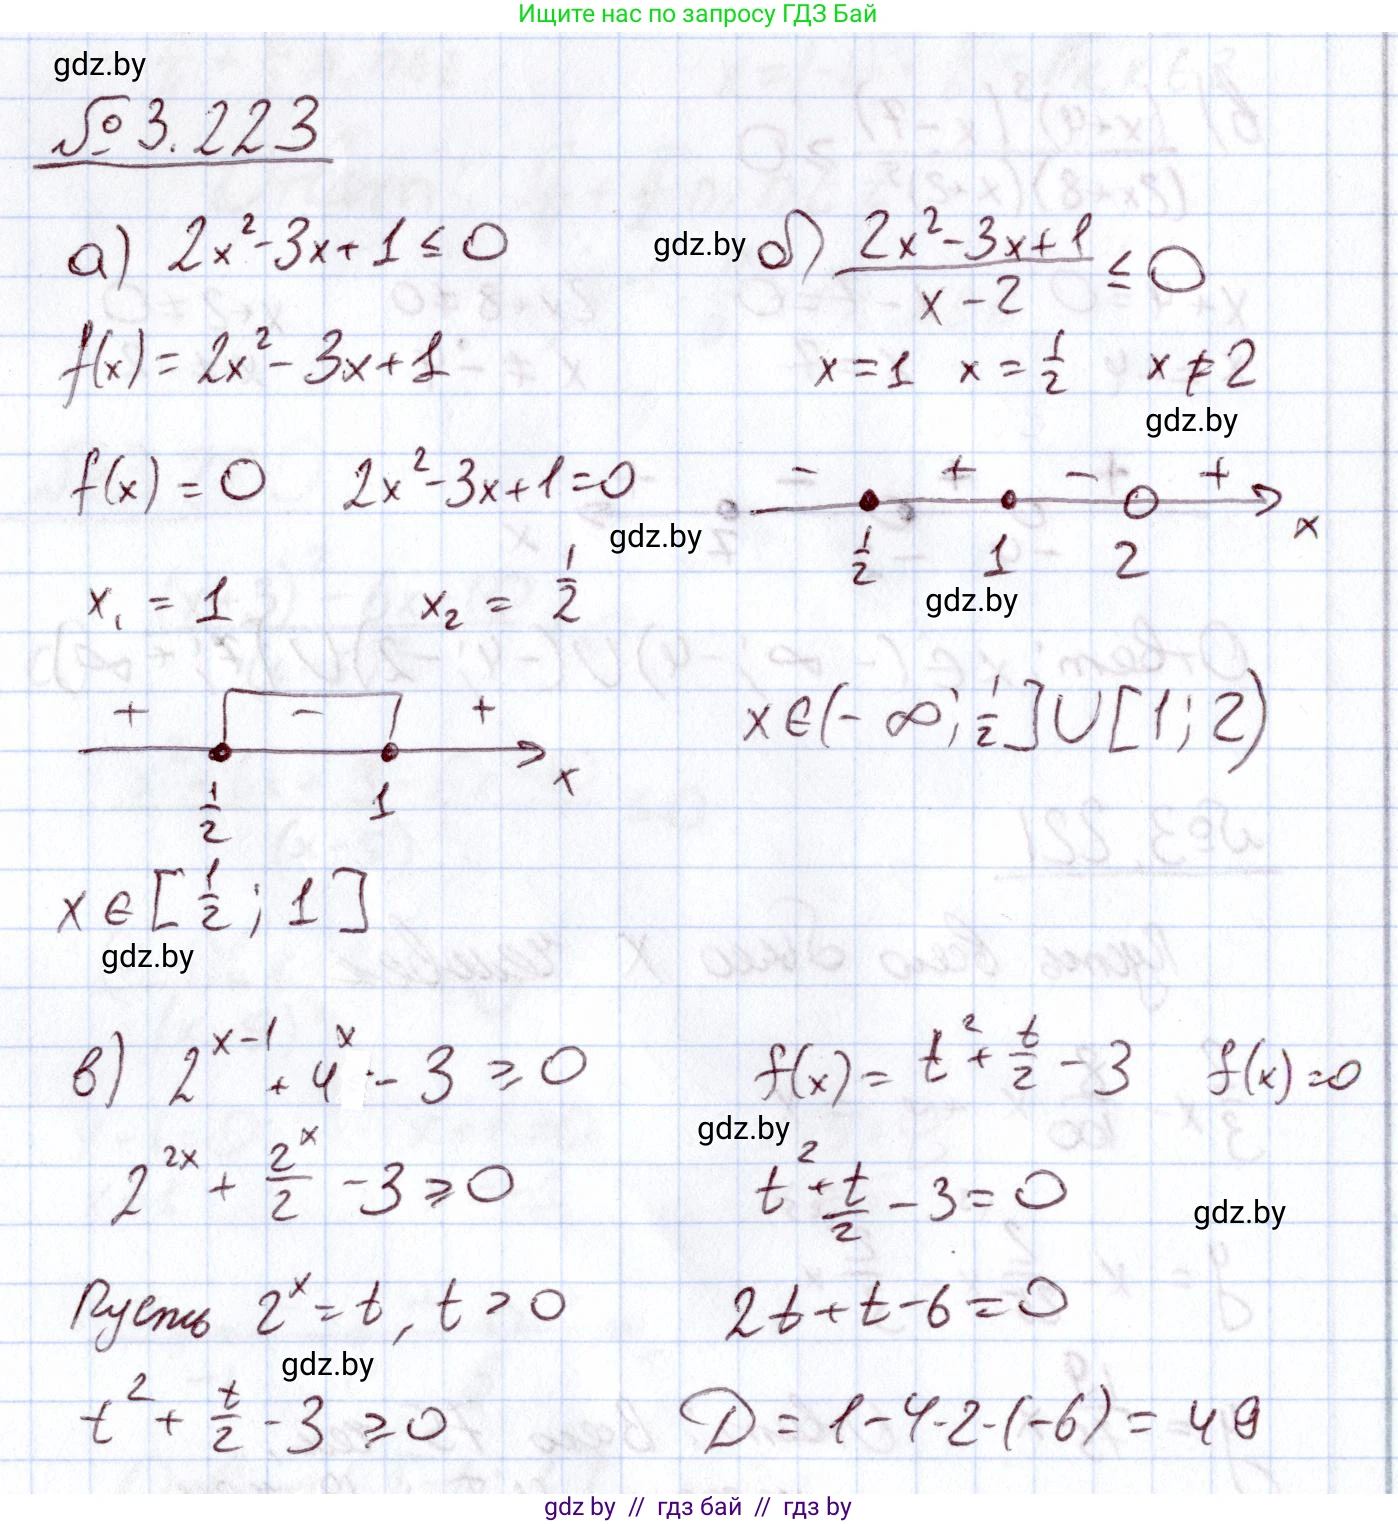 Ищите нас по запросу ГДЗ Бай
gdz.by
№ 3.223
а) 2x² - 3x + 1 ≤ 0
f(x) = 2x² - 3x + 1
f(x) = 0   2x² - 3x + 1 = 0
gdz.by
x₁ = 1   x₂ = 1/2
+ − +
1/2   1   x
x ∈ [1/2; 1]
gdz.by
gdz.by
б) (2x² - 3x + 1)/(x - 2) ≤ 0
x = 1   x = 1/2   x ≠ 2
gdz.by
− + − +
1/2   1   2   x
gdz.by
x ∈ (-∞; 1/2] ∪ [1; 2)
в) 2^(x-1) + 4^x - 3 ≥ 0
2^(2x) + 2^x/2 - 3 ≥ 0
Пусть 2^x = t, t > 0
gdz.by
t² + t/2 - 3 ≥ 0
f(x) = t² + t/2 - 3   f(x) = 0
gdz.by
t² + t/2 - 3 = 0
gdz.by
2t + t - 6 = 0
D = 1 - 4·2·(-6) = 49
gdz by // гдз бай // гдз by